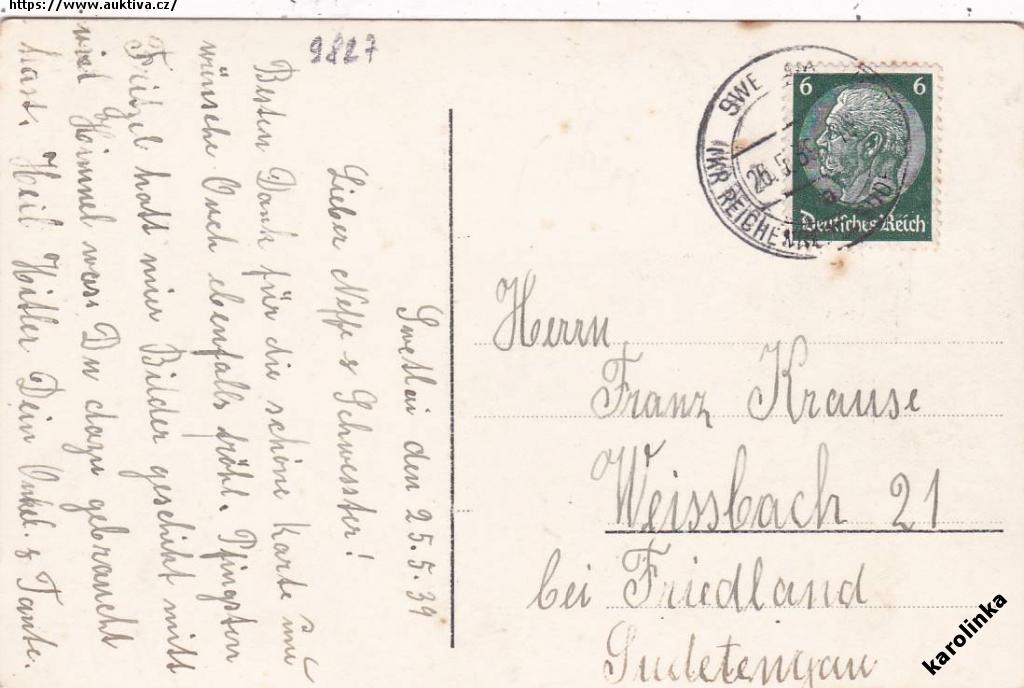 https://www.auktiva.cz/
9827
Swetlei den 25.5.39
Lieber Neffe & Schwesster!
Besten Dank für die schöne Karte &
wünsche Euch ebenfalls fröhl. Pfingsten
Fritzel hatt mier Bilder geschikt mitt
viel Himmel was Du dazu gebraucht
hast. Heil Hitler Dein Onkel & Tante.
SWE
26.5.39
REICHEN
6 6
Deutsches Reich
Herrn
Franz Krause
Weissbach 21
bei Friedland
Sudetengau
karolinka